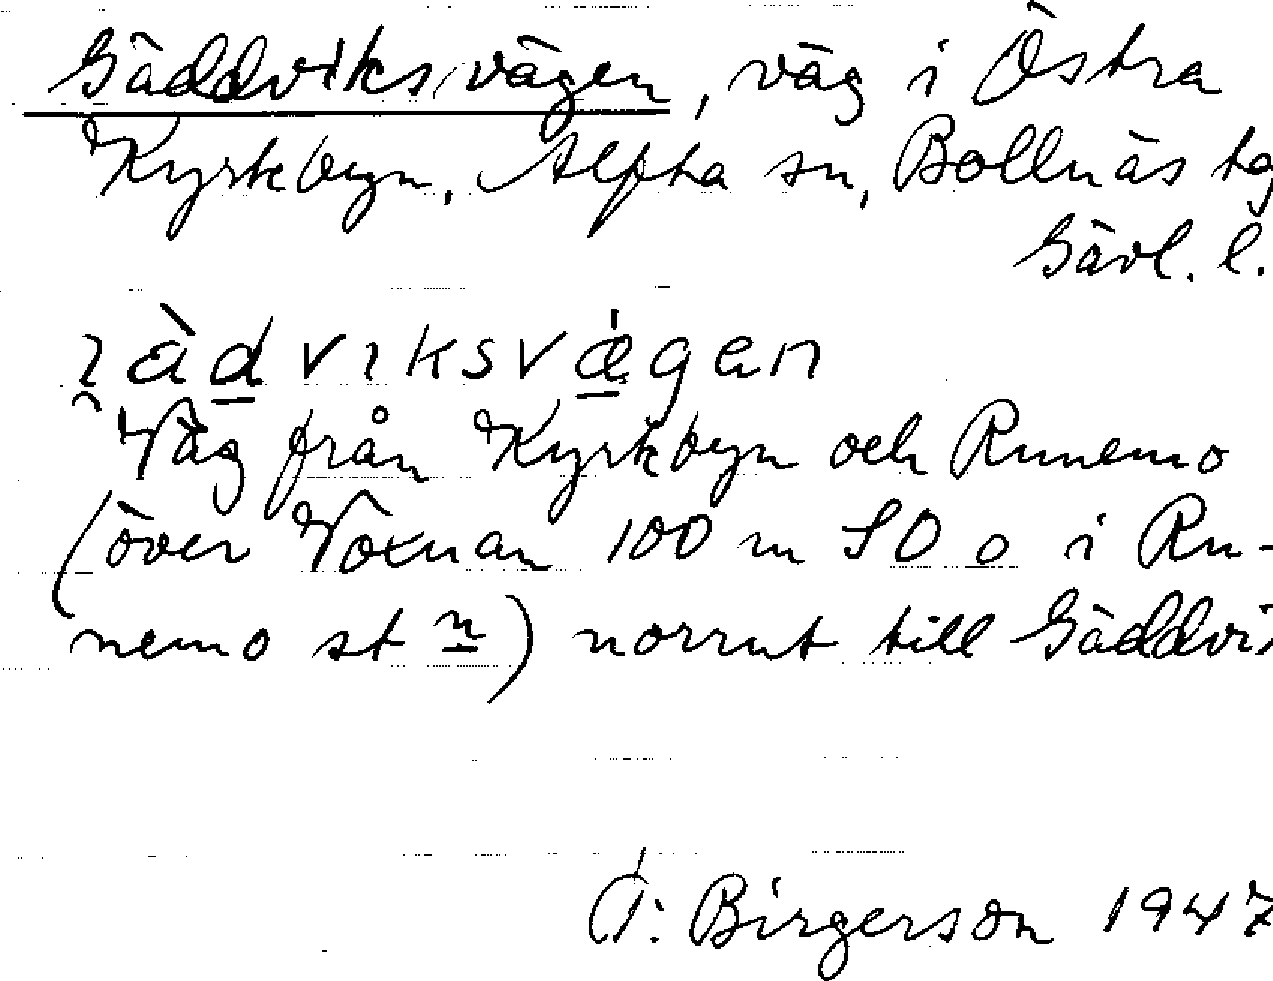 Gäddviksvägen, väg i Östra
Kyrkbyn, Alfta sn, Bollnäs tg
Gävl. l.
Väg från Kyrkbyn och Runemo
(över Voxnan 100 m SO o i Ru-
nemo st n) norrut till Gäddvi
Birgerson 1947